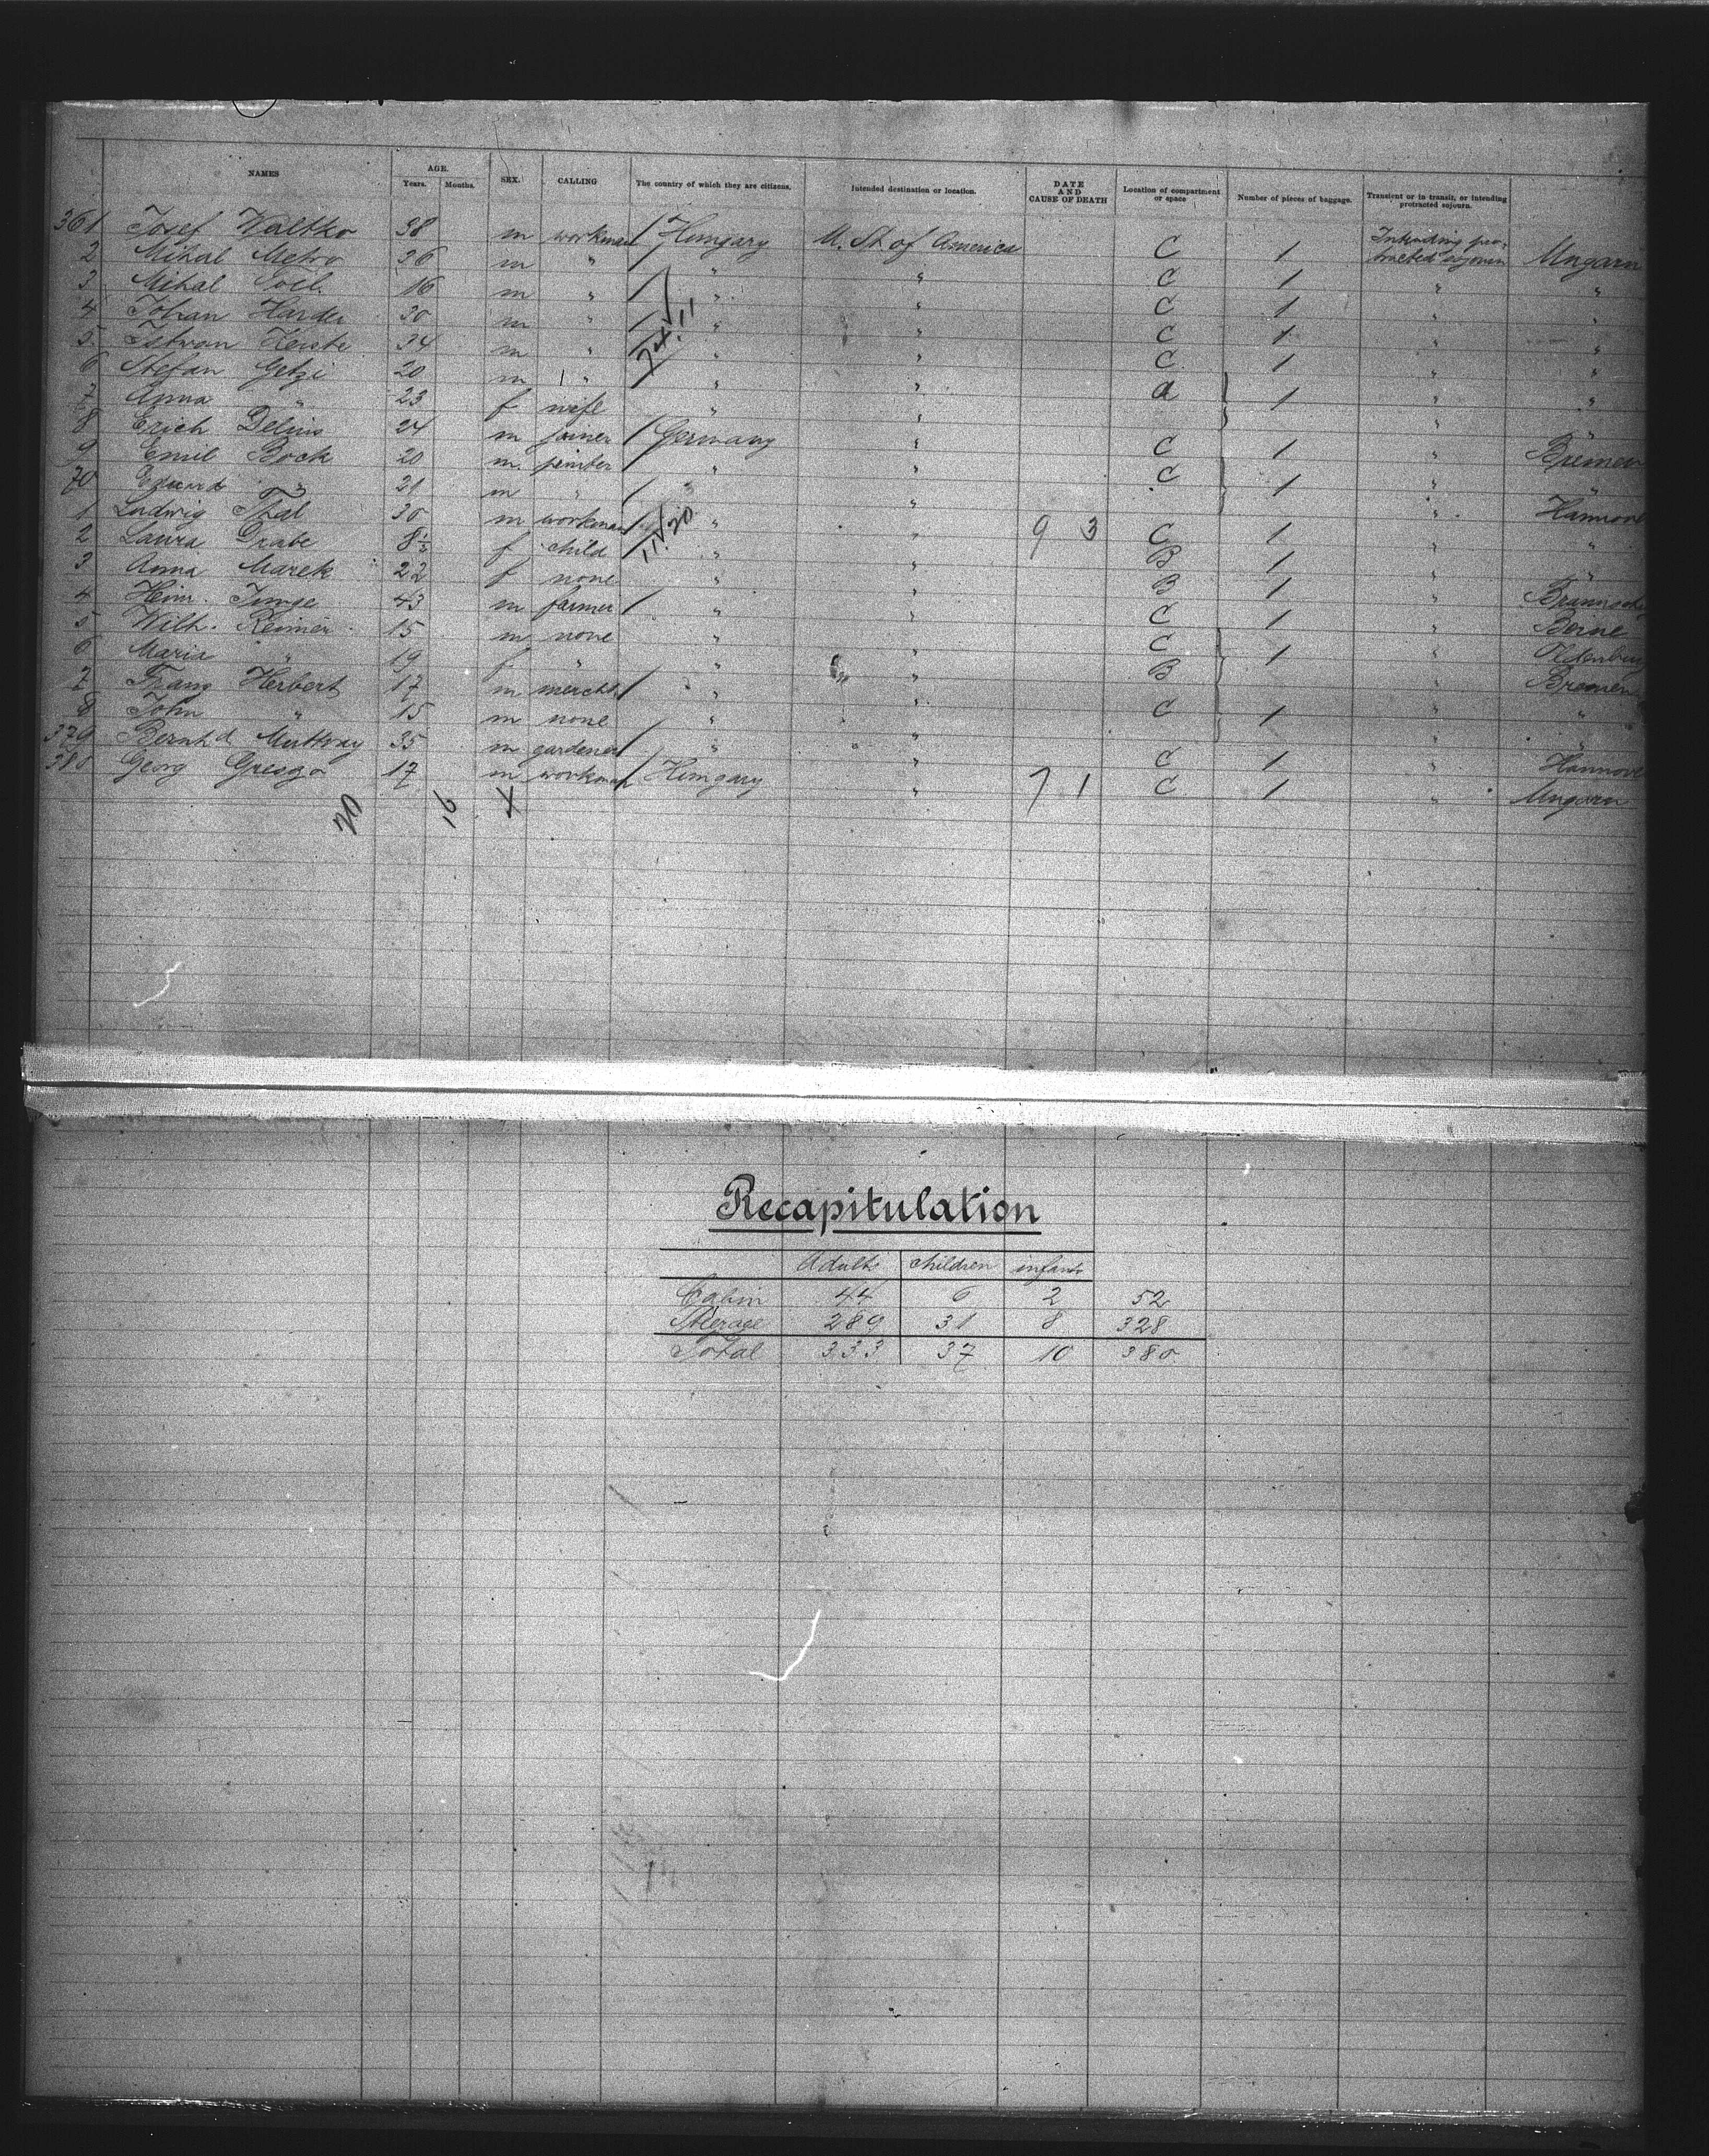 NAMES AGE. Years. Months. SEX. CALLING The country of which they are citizens. Intended destination or location. DATE AND CAUSE OF DEATH Location of compartment or space Number of pieces of baggage. Transient or in transit, or intending protracted sojourn.
361 Josef Waltko 38 m workman / Hungary U. St of America C 1 Intending pro- tracted sojourn Ungarn
2 Mihal Metro 36 m " / " " C 1 " "
3 Mihal 16 m " / " " C 1 " "
4 Johan Harder 30 m " / " " C 1 " "
5 Istvan 34 m " / " " C 1 " "
6 Stefan Getzi 20 m " " " a 1 " "
7 Anna " 23 f wife " " " "
8 Erich Delius 24 m joiner / Germany " C 1 " Bremen
9 Emil Bock 20 m painter / " " C 1 " "
70 Eduard " 21 m " / " " " Hannover
1 Ludwig Thal 30 m workman / " " 9 3 C 1 " "
2 Laura Grabe 8½ f child " " B 1 " "
3 Anna Marek 22 f none " " B 1 " Braunsch
4 Heinr. Junge 43 m farmer / " " C 1 " Berne
5 Wilh. Reimer 15 m none " " C 1 " Oldenburg
6 Maria " 19 f " " " B " Bremen
7 Franz Herbert 17 m mercht / " " C 1 " "
8 John " 15 m none " " " "
379 Bernhd Muttray 35 m gardener / " " C 1 " Hannover
380 Georg 17 m workman / Hungary " 7 1 C 1 " Ungarn
20 16 4
Recapitulation
Adults children infants
Cabin 44 6 2 52
Steerage 289 31 8 328
Total 333 37 10 380